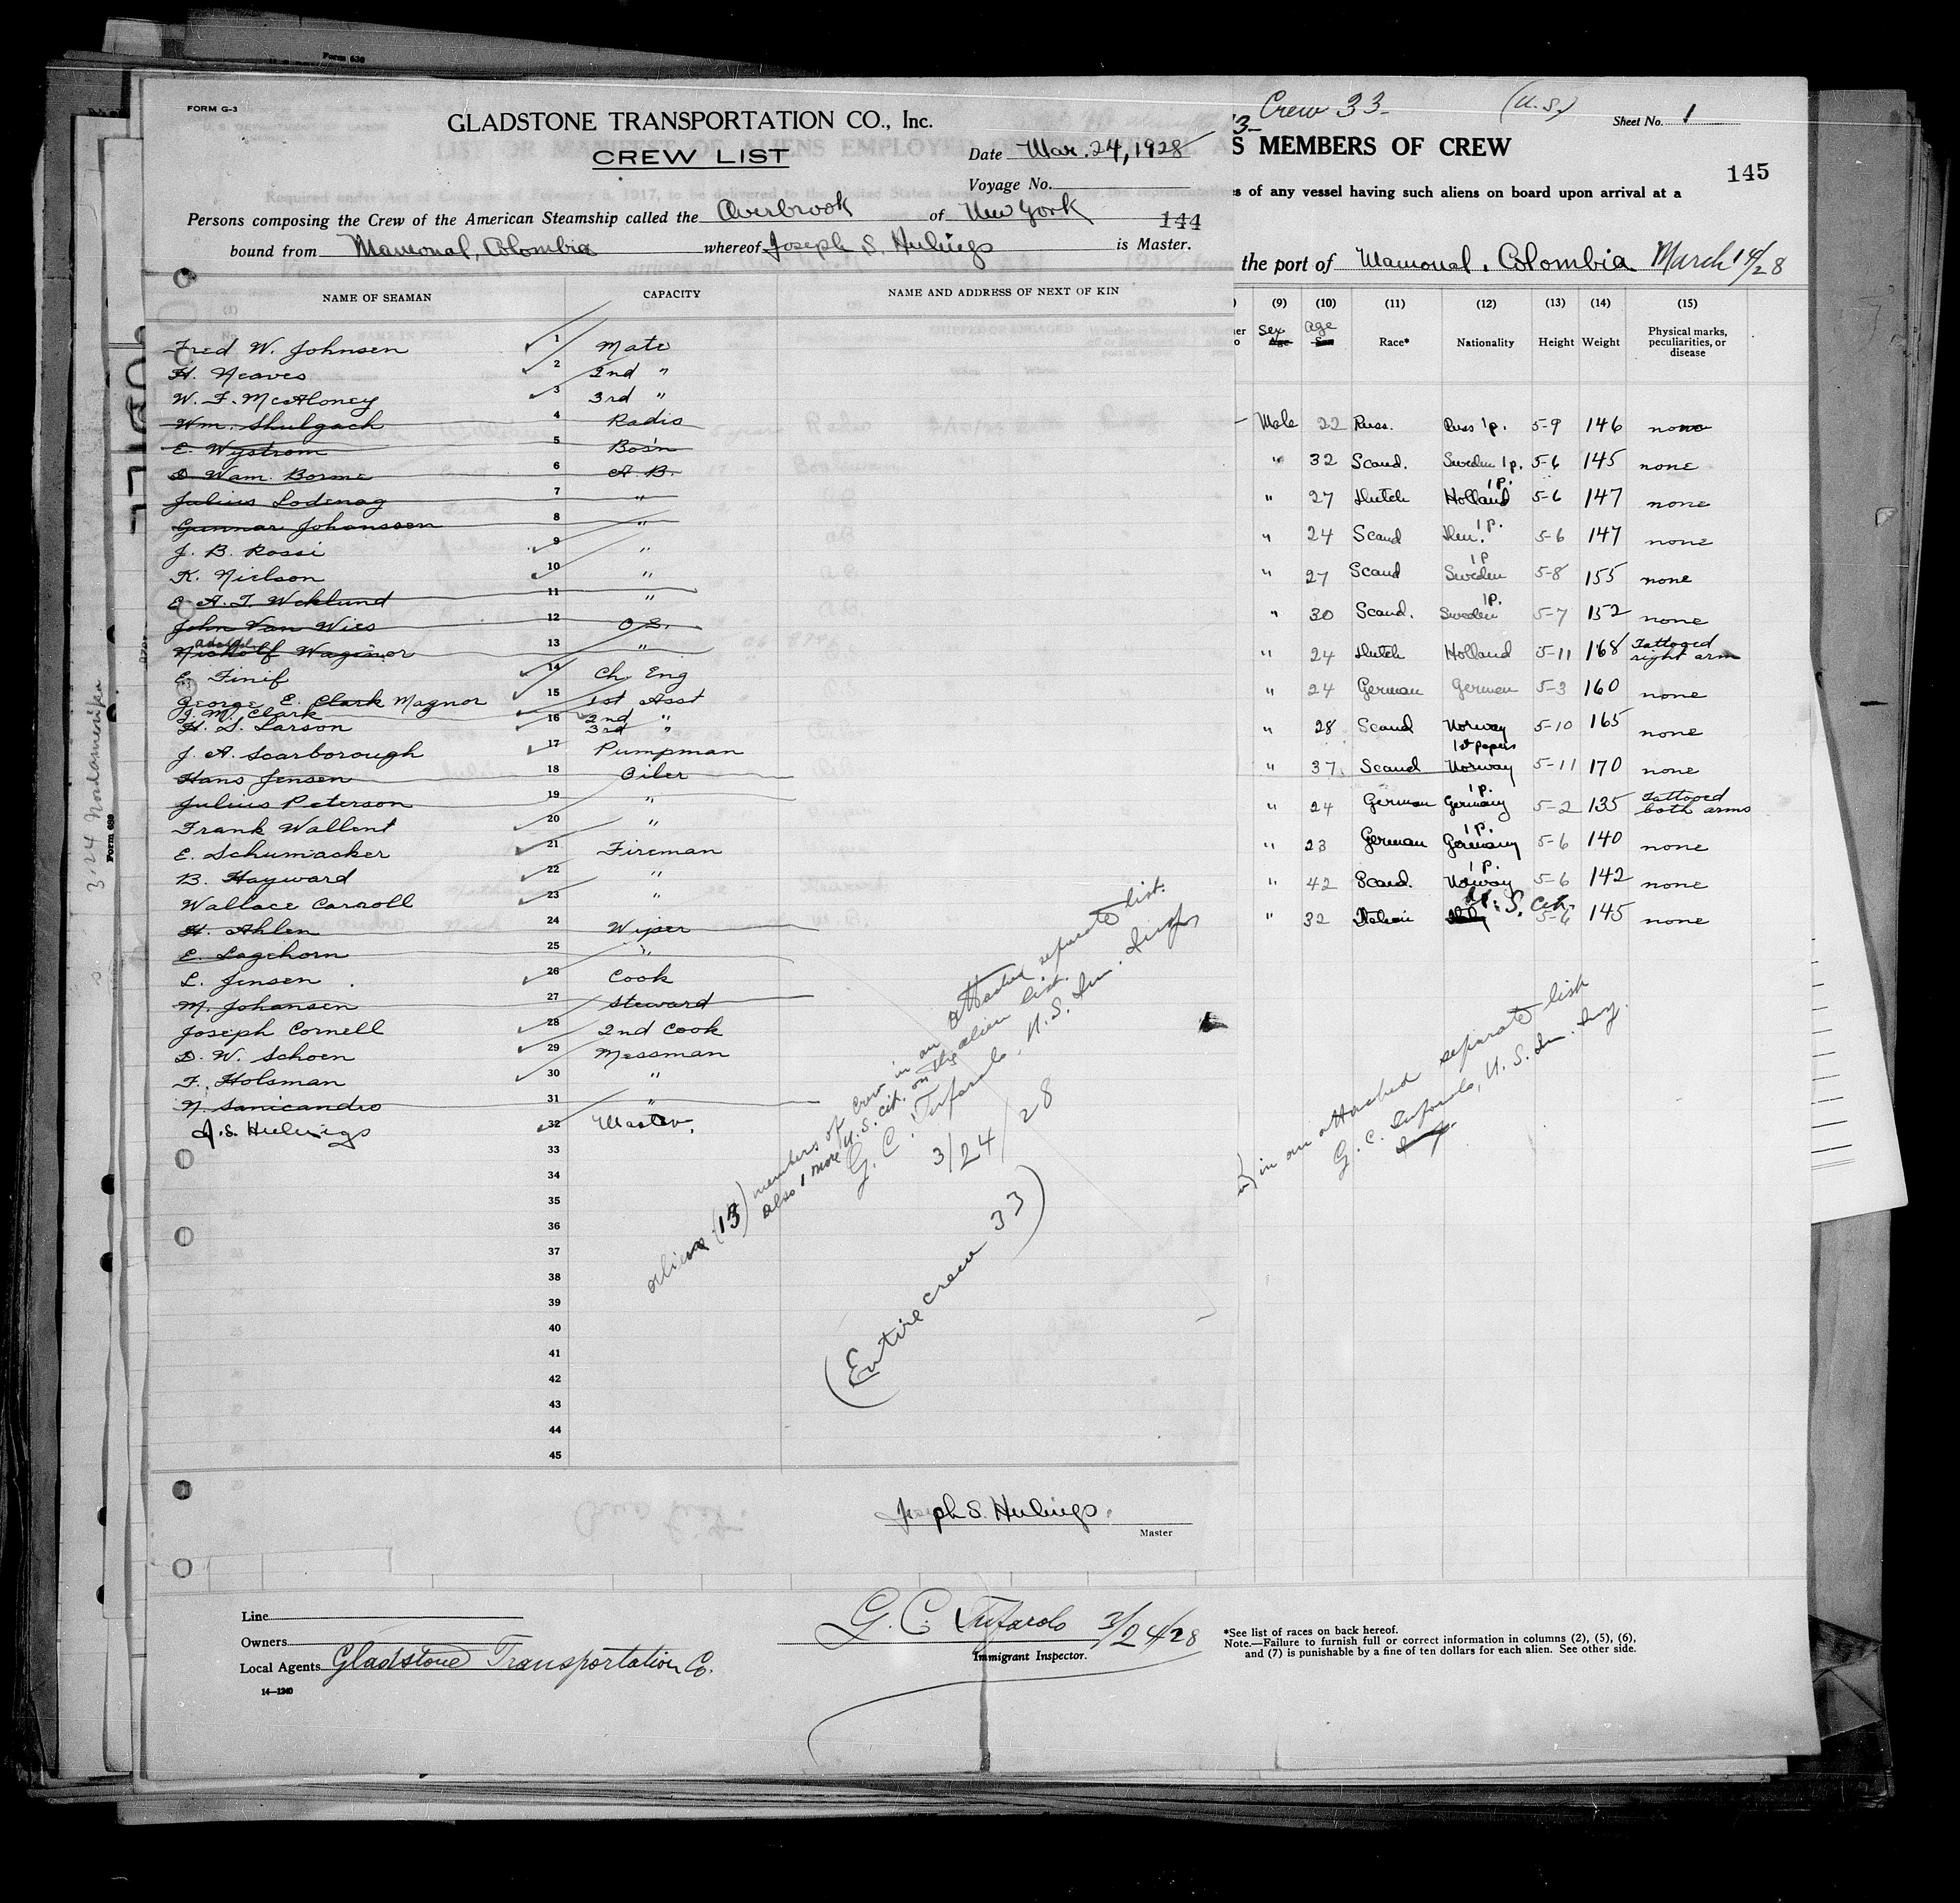 Form 630
FORM G-3
GLADSTONE TRANSPORTATION CO., Inc.
CREW LIST
Date Mar. 24, 1928
Voyage No.
Persons composing the Crew of the American Steamship called the Overbrook of New York 144
bound from Mamonal, Colombia whereof Joseph S. Hulings is Master.
NAME OF SEAMAN CAPACITY NAME AND ADDRESS OF NEXT OF KIN
Fred W. Johnsen 1 Mate
H. Neaves 2 2nd "
W. F. McAloney 3 3rd "
Wm. Shulgach 4 Radio
E. Wystrom 5 Bos'n
D. Wam. Borme 6 A.B.
Julius Lodenag 7 "
Gunnar Johanssen 8 "
J. B. Rossi 9 "
K. Nielson 10 "
E. A. T. Weklund 11 "
John Van Wies 12 O.S.
Wagimor 13 "
E. Finif 14 Ch. Eng
George E. Clark Magnor 15 1st Asst
J. M. Clark 16 2nd "
H. S. Larson 3rd "
J. A. Scarborough 17 Pumpman
Hans Jensen 18 Oiler
Julius Peterson 19 "
Frank Wallent 20 "
E. Schumacker 21 Fireman
B. Hayward 22 "
Wallace Carroll 23 "
H. Ahlen 24 Wiper
E. Lagehorn 25 "
L. Jensen 26 Cook
M. Johansen 27 Steward
Joseph Cornell 28 2nd Cook
D. W. Schoen 29 Messman
F. Holsman 30 "
N. Sanicandro 31 "
J. S. Hulings 32 Master.
33
34
35
36
37
38
39
40
41
42
43
44
45
aliens (13) members of crew in an attached separate list.
also 1 more U.S. cit. on the alien list.
G. C. Tufarolo, U.S. Im. Insp.
3/24/28
(Entire crew 33)
Joseph S. Hulings.
Master
Line
Owners
Local Agents Gladstone Transportation Co.
14—1240
G. C. Tufarolo 3/24/28
Immigrant Inspector.
Crew 33- (U.S.)
Sheet No. 1
13-
S MEMBERS OF CREW
145
s of any vessel having such aliens on board upon arrival at a
the port of Mamonal, Colombia March 14/28
(9) (10) (11) (12) (13) (14) (15)
Sex Age Race* Nationality Height Weight Physical marks, peculiarities, or disease
Age Sex
Male 22 Russ. Russ 1p. 5-9 146 none
" 32 Scand. Sweden 1p. 5-6 145 none
" 27 Dutch Holland 1p. 5-6 147 none
" 24 Scand Den. 1p. 5-6 147 none
" 27 Scand Sweden 1p 5-8 155 none
" 30 Scand. Sweden 1p. 5-7 152 none
" 24 Dutch Holland 5-11 168 Tattooed right arm
" 24 German German 5-3 160 none
" 28 Scand Norway 1st papers 5-10 165 none
" 37 Scand Norway 5-11 170 none
" 24 German Germany 1p. 5-2 135 Tattooed both arms
" 23 German Germany 1p. 5-6 140 none
" 42 Scand. Norway 1p. 5-6 142 none
" 32 Italian Italy U.S. Cit. 5-6 145 none
in an attached separate list
G. C. Tufarolo, U.S. Im. Insp.
*See list of races on back hereof.
Note.—Failure to furnish full or correct information in columns (2), (5), (6),
and (7) is punishable by a fine of ten dollars for each alien. See other side.
3-24 Nordamerika
Form 689